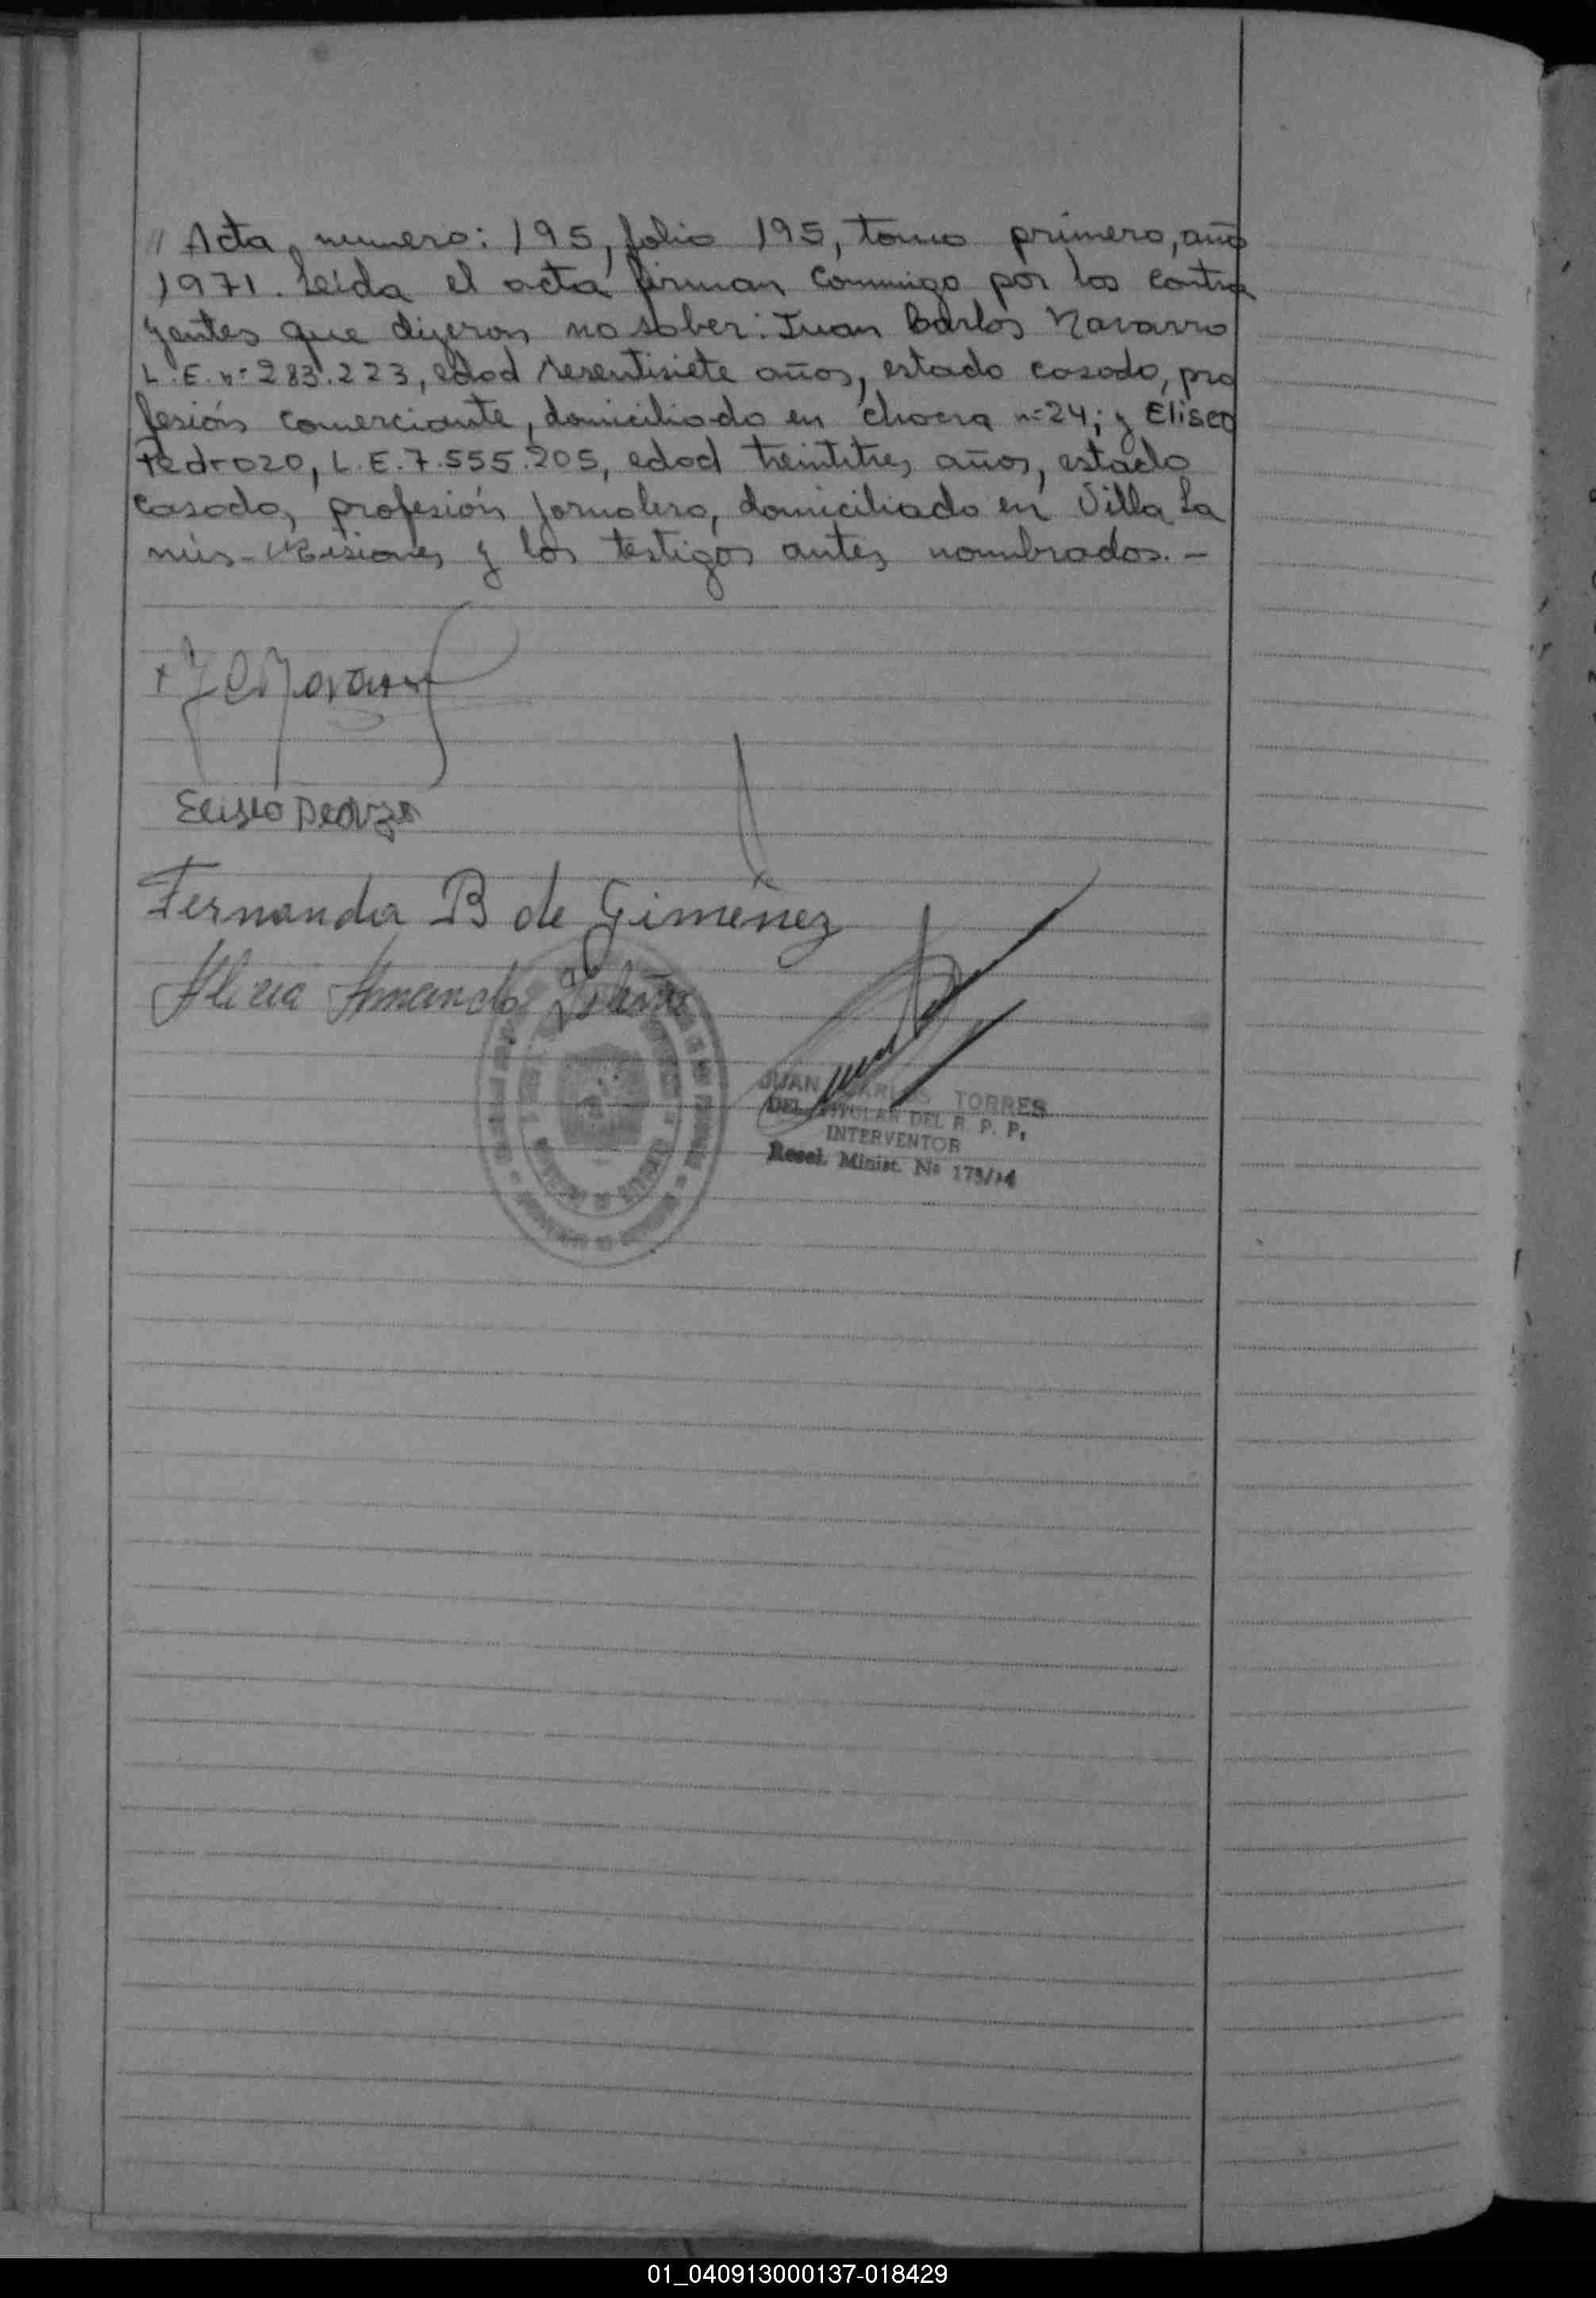 // Acta numero: 195, folio 195, tomo primero, año
1971. Leída el acta firman conmigo por los contra
yentes que dijeron no saber: Juan Carlos Navarro
L.E. nº 283.223, edad sesentisiete años, estado casado, pro
fesión comerciante, domiciliado en chacra nº 24; y Eliseo
Pedrozo, L.E. 7.555.205, edad treintitres años, estado
casado, profesión jornalero, domiciliado en Villa La
nús - Misiones y los testigos antes nombrados. -
Fernanda B de Gimenez
Alicia
JUAN CARLOS TORRES
DEL. TITULAR DEL R. P. P.
INTERVENTOR
Resol. Minist. Nº
01_040913000137-018429